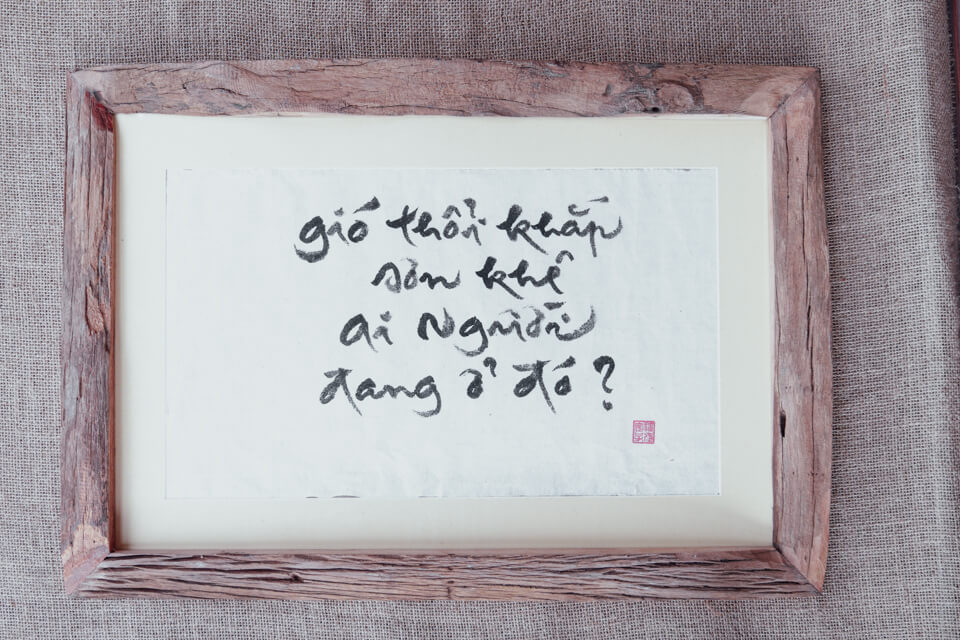 gió thổi khắp
sơn khê
ai Người
đang ở đó?